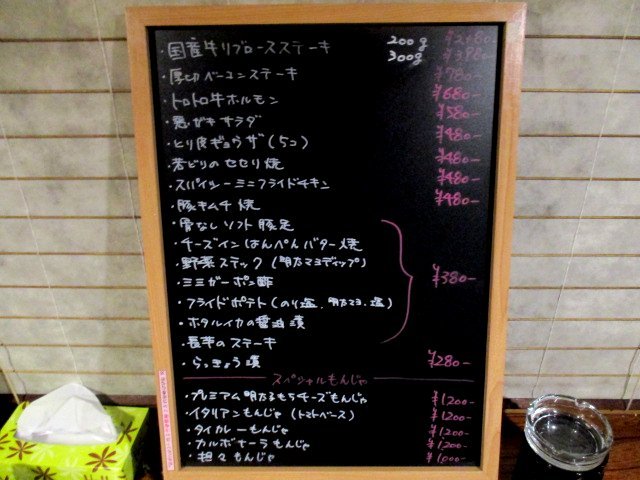 ・国産牛リブロースステーキ 200g ¥2480-
300g ¥3980-
・厚切ベーコンステーキ ¥780-
・トロトロ牛ホルモン ¥680-
・悪ガキサラダ ¥580-
・とり皮ギョウザ(5コ) ¥480-
・若どりのセセリ焼 ¥480-
・スパイシーミニフライドチキン ¥480-
・豚キムチ焼 ¥480-
・骨なしソフト豚足
・チーズインはんぺんバター焼
・野菜スティック(明太マヨディップ)
・ミミガーポン酢 ¥380-
・フライドポテト(のり塩、明太マヨ、塩)
・ホタルイカの醤油漬
・長芋のステーキ
・らっきょう漬 ¥280-
スペシャルもんじゃ
・プレミアム明太もちチーズもんじゃ ¥1200-
・イタリアンもんじゃ(トマトベース) ¥1200-
・タイカレーもんじゃ ¥1200-
・カルボナーラもんじゃ ¥1200-
・担々もんじゃ ¥1000-